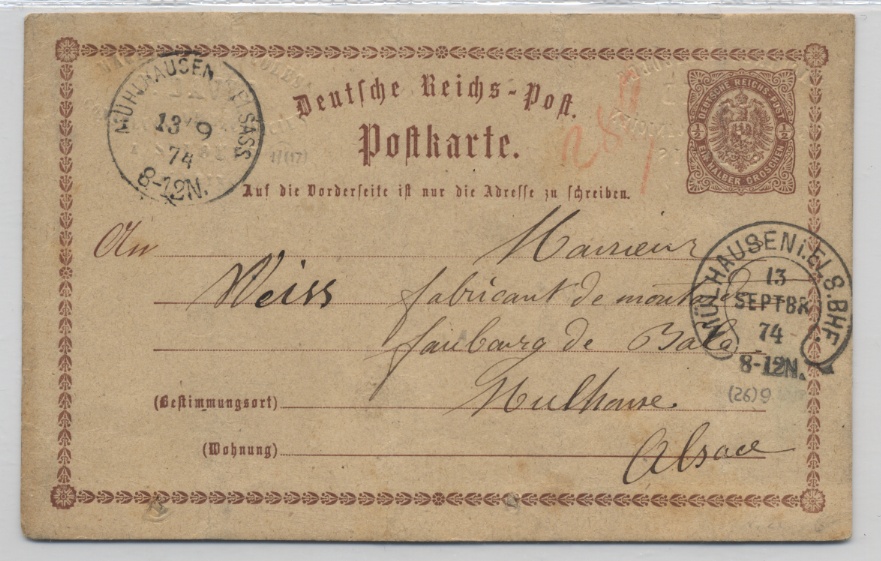 Deutsche Reichs-Post.
Postkarte.
Auf die Vorderseite ist nur die Adresse zu schreiben.
MÜHLHAUSEN ELSASS
13 9
74
8-12N.
1/(17)
DEUTSCHE REICHS-POST
½ ½
EIN HALBER GROSCHEN
An
Monsieur
Weiss fabricant de
faubourg de Bale
(Bestimmungsort) Mulhouse
(Wohnung) Alsace
MÜLHAUSEN i. ELS. BHF.
13
SEPTBR
74
8-12N.
(26)9